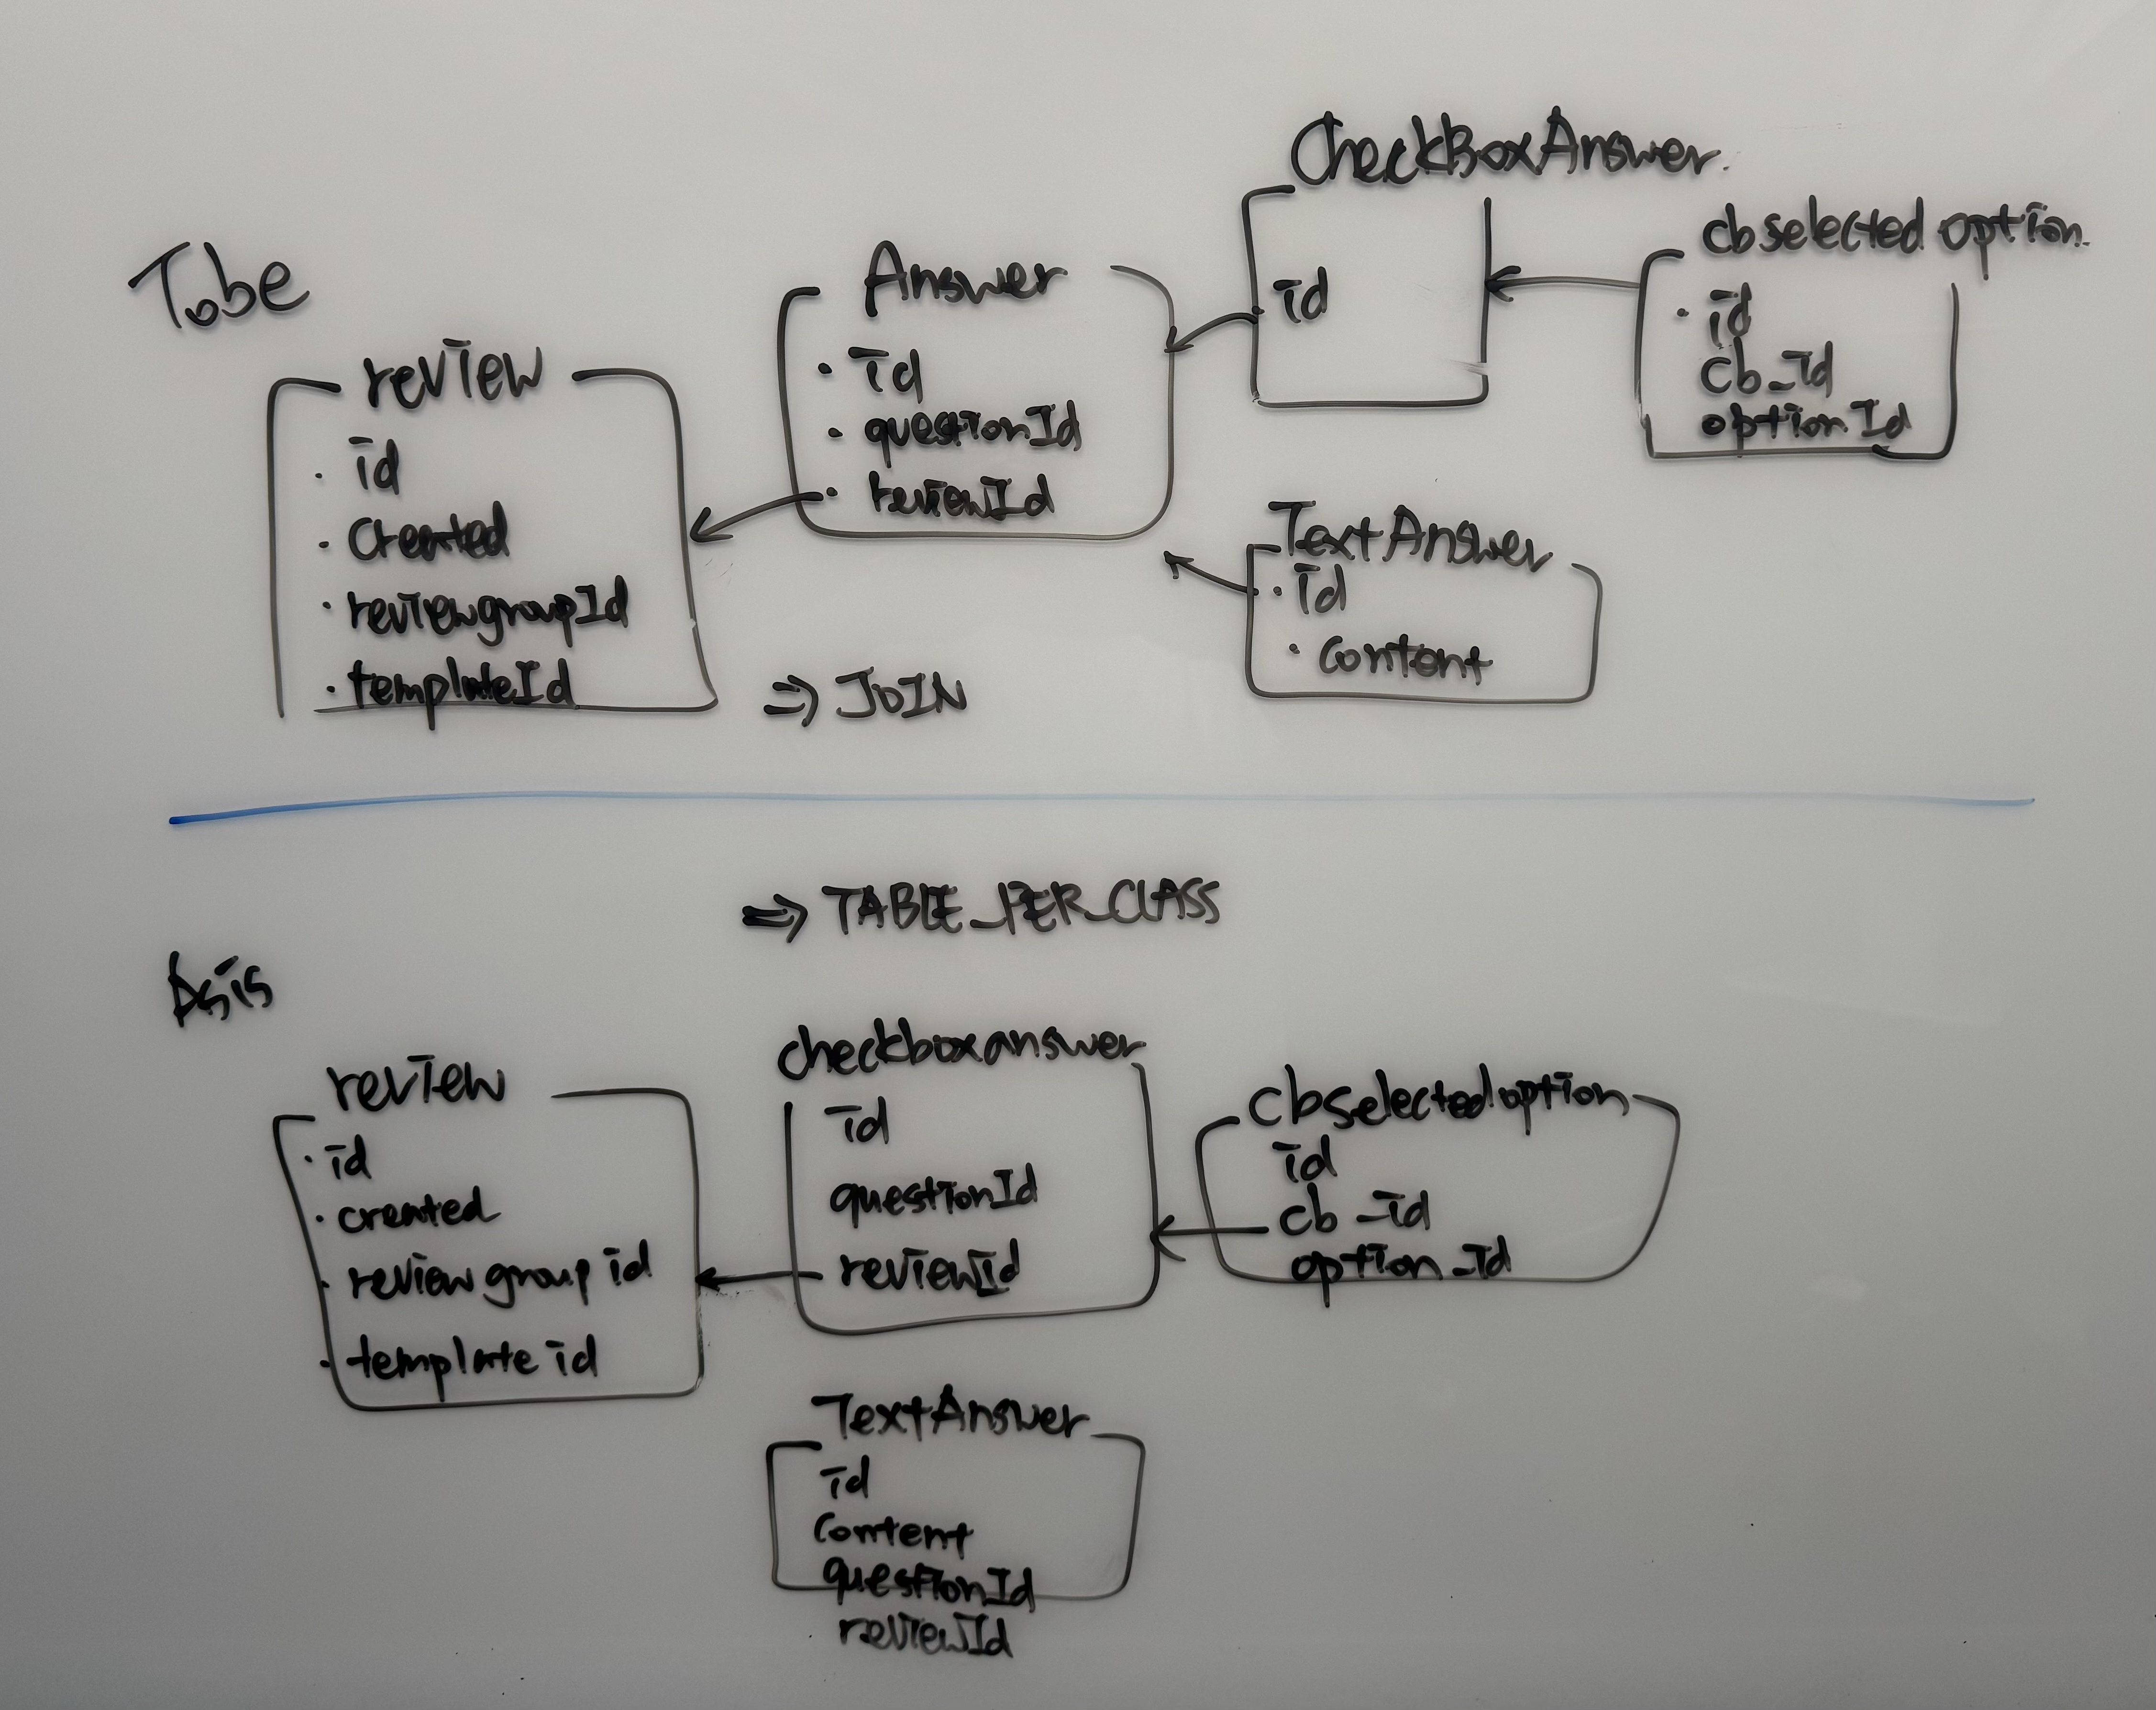 Tobe
review
· id
· Created
· reviewgroupId
· templateId
Answer
· id
· questionId
· reviewId
CheckBoxAnswer.
id
cbselected option.
· id
cb_id
optionId
TextAnswer
· id
· content
⇒ JOIN
⇒ TABLE_PER_CLASS
Asis
review
· id
· created
· reviewgroup id
· template id
checkboxanswer
id
questionId
reviewid
cbselectedoption
id
cb_id
option_id
TextAnswer
id
content
questionId
reviewId